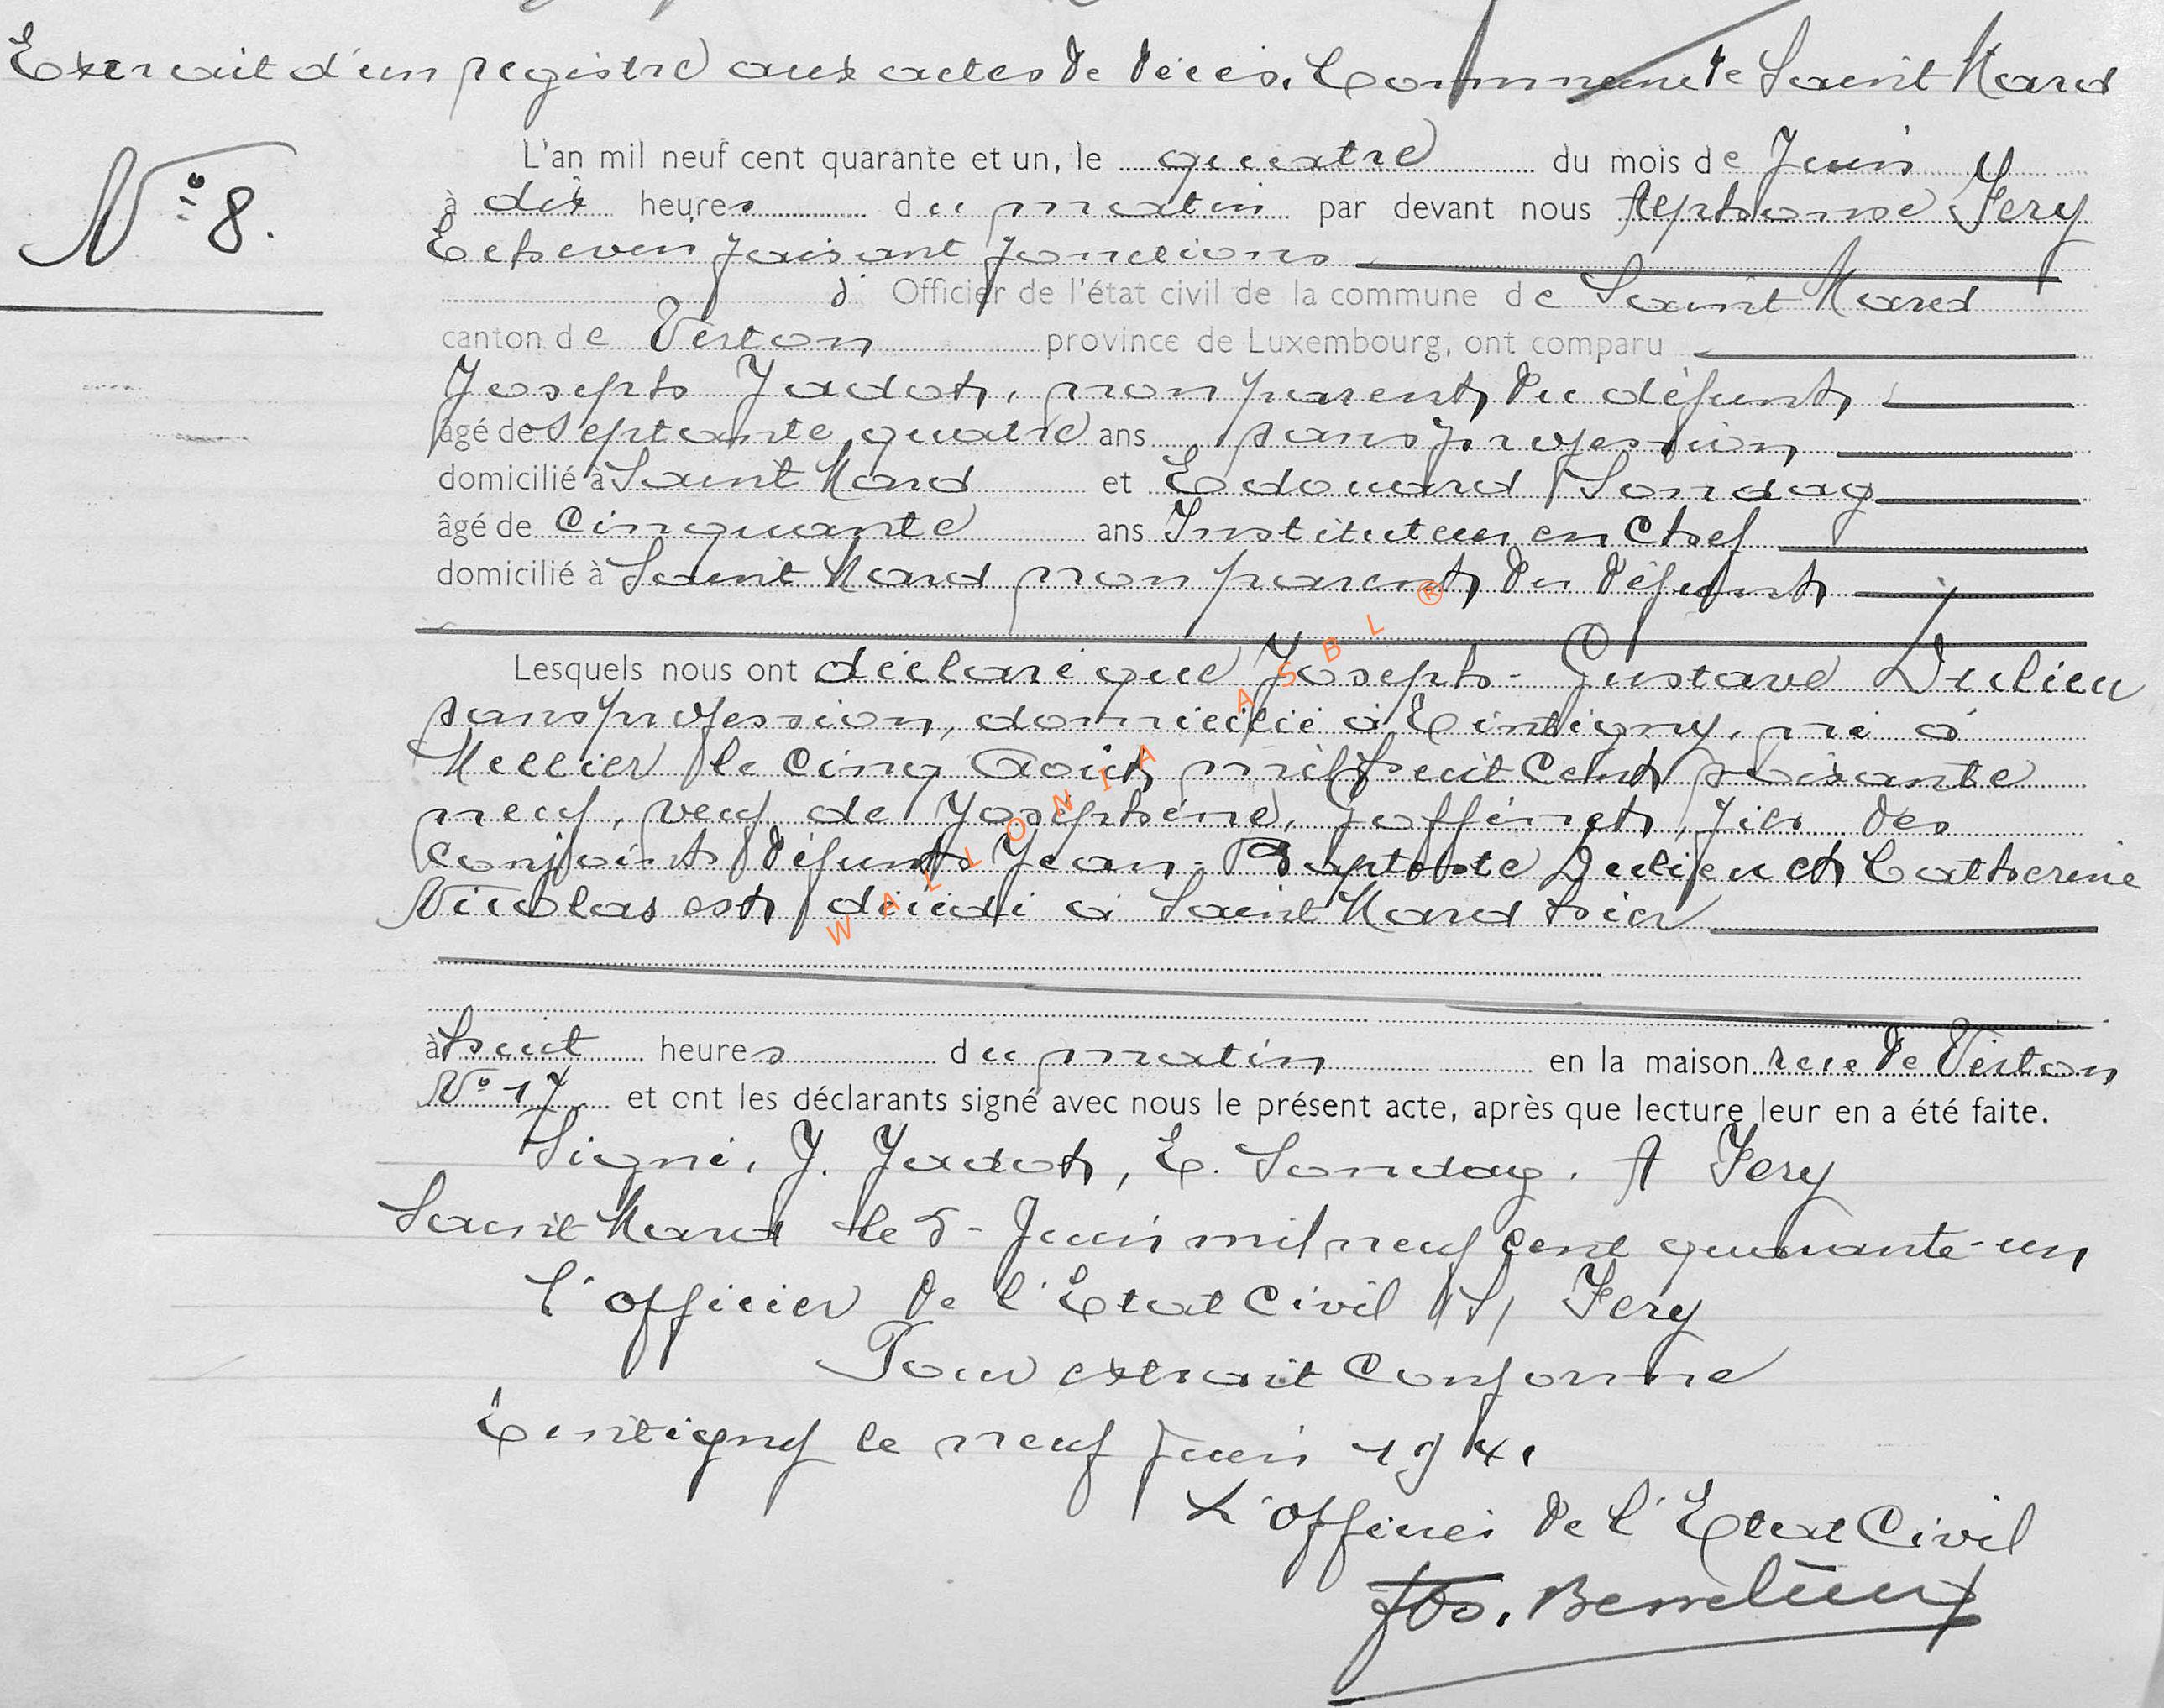 Extrait d'un registre aux actes de décès. Commune de Saint Mard
N° 8.
L'an mil neuf cent quarante et un, le quatre du mois de Juin
à dix heures du matin par devant nous Alphonse Fery
Echevin faisant fonctions
d' Officier de l'état civil de la commune de Saint Mard
canton de Virton province de Luxembourg, ont comparu
Joseph Jadot, non parent du défunt,
âgé de septante quatre ans sans profession
domicilié à Saint Mard et Edouard Sondag
âgé de cinquante ans Instituteur en Chef
domicilié à Saint Mard non parent du défunt
Lesquels nous ont déclaré que Joseph-Gustave Dulieu
sans profession, domicilié à Tintigny, né à
Mellier le cinq Août mil huit cent soixante
neuf, veuf de Joséphine, Goffinet, fils des
conjoints défunts Jean-Baptiste Dulieu et Catherine
Nicolas est décédé à Saint Mard hier
à huit heures du matin en la maison rue de Virton
N° 17 et ont les déclarants signé avec nous le présent acte, après que lecture leur en a été faite.
Signé, J. Jadot, E. Sondag. A Fery
Saint Mard le 5-Juin mil neuf cent quarante-un
l'officier de l'Etat Civil (S) Fery
Pour extrait conforme
Tintigny le neuf Juin 1941
L'officier de l'Etat Civil
Jos.
WALLONIA ASBL ®